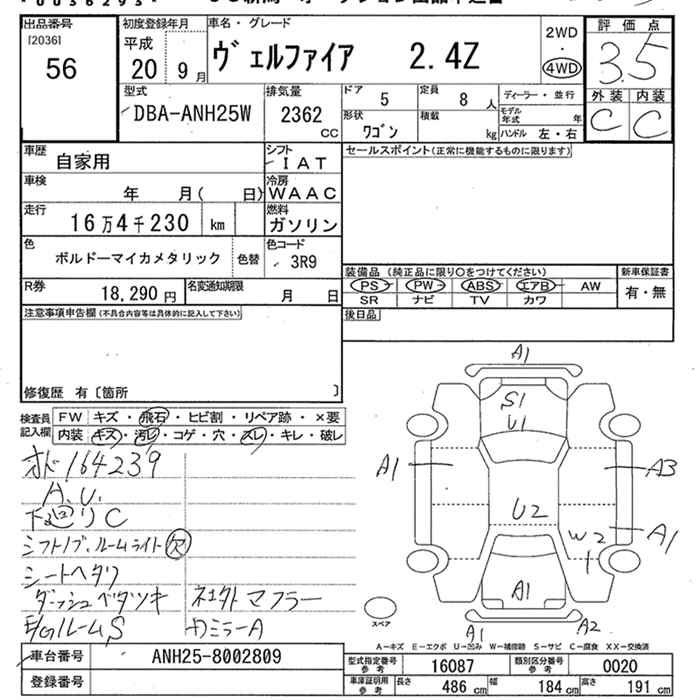 0036293
出品番号
[2036]
56
初度登録年月
平成
20 9 月
車名・グレード
ヴェルファイア 2.4Z
2WD
・
4WD
評価点
3.5
外装 内装
C C
型式
DBA-ANH25W
排気量
2362 CC
ドア 5
定員 8 人
ディーラー・並行
形状 ワゴン
積載 kg
モデル年式 年
ハンドル 左・右
車歴 自家用
シフト IAT
セールスポイント(正常に機能するものに限ります)
車検 年 月( 日)
冷房 WAAC
走行 16万4千230 km
燃料 ガソリン
色 ボルドーマイカメタリック 色替
色コード 3R9
装備品(純正品に限り○をつけてください)
新車保証書
PS PW ABS エアB AW 有・無
SR ナビ TV カワ
R券 18,290円
名変通知期限 月 日
後日品
注意事項申告欄(不具合内容等は具体的に記入して下さい)
修復歴 有〔箇所 〕
検査員記入欄
FW キズ・飛石・ヒビ割・リペア跡・×要
内装 キズ・汚レ・コゲ・穴・スレ・キレ・破レ
オド164239
A.U.
下廻りC
シフトノブ.ルームライト欠
シートヘタリ
ダッシュベタツキ
E/Gルーム S
マフラー
カミラーA
A1
S1
U1
A1
A3
U2
W2
A1
A1
A1
A2
スペア
A-キズ E-エクボ U-凹み W-補修跡 S-サビ C-腐食 XX-交換済
車台番号 ANH25-8002809
登録番号
型式指定番号参考 16087
類別区分番号参考 0020
車庫証明用参考 長さ 486 cm 幅 184 cm 高さ 191 cm